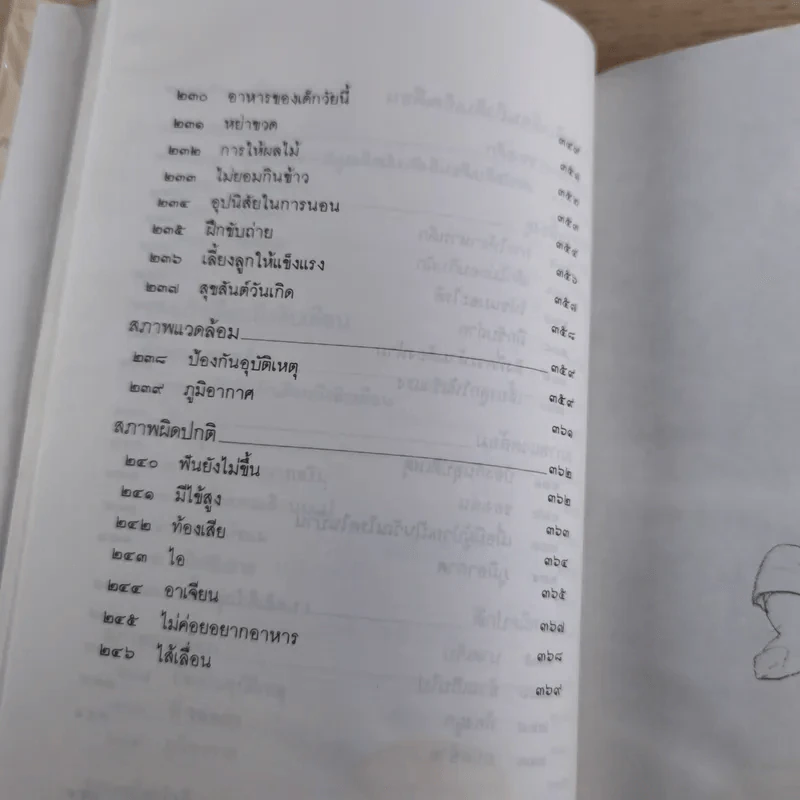 ๒๓๐ อาหารของเด็กวัยนี้ ๓๔๙
๒๓๑ หย่าขวด ๓๕๑
๒๓๒ การให้ผลไม้ ๓๕๒
๒๓๓ ไม่ยอมกินข้าว ๓๕๓
๒๓๔ อุปนิสัยในการนอน ๓๕๔
๒๓๕ ฝึกขับถ่าย ๓๕๖
๒๓๖ เลี้ยงลูกให้แข็งแรง ๓๕๗
๒๓๗ สุขสันต์วันเกิด ๓๕๘
สภาพแวดล้อม ๓๕๙
๒๓๘ ป้องกันอุบัติเหตุ ๓๕๙
๒๓๙ ภูมิอากาศ ๓๖๑
สภาพผิดปกติ ๓๖๒
๒๔๐ ฟันยังไม่ขึ้น ๓๖๒
๒๔๑ มีไข้สูง ๓๖๓
๒๔๒ ท้องเสีย ๓๖๔
๒๔๓ ไอ ๓๖๕
๒๔๔ อาเจียน ๓๖๗
๒๔๕ ไม่ค่อยอยากอาหาร ๓๖๘
๒๔๖ ไส้เลื่อน ๓๖๙